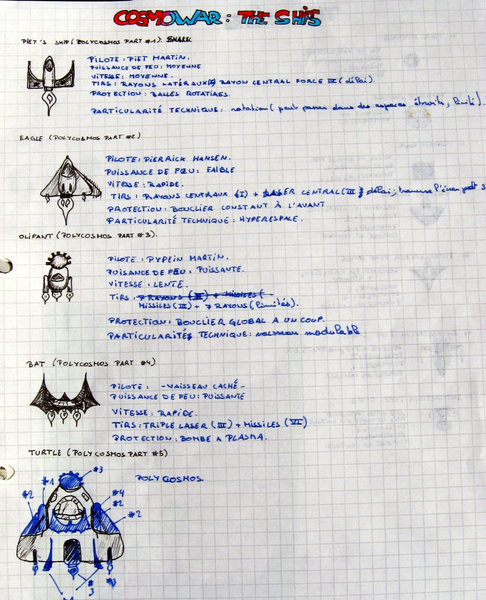 COSMOWAR: THE SHIS
PIET'S SHIP (POLYCOSMOS PART #1). SHARK
PILOTE: PIET MARTIN.
PUISSANCE DE FEU: MOYENNE
VITESSE: MOYENNE.
TIRS: RAYONS LATÉRAUX RAYON CENTRAL FORCE III (délai).
PROTECTION: BALLES ROTATIVES.
PARTICULARITÉ TECHNIQUE: rotation (peut passer dans des espaces étroits, limité).
EAGLE (POLYCOSMOS PART #2)
PILOTE: PIERRICK HANSEN.
PUISSANCE DE FEU: FAIBLE
VITESSE: RAPIDE.
TIRS: RAYONS CENTRAUX (I) + LASER CENTRAL (III délai,
PROTECTION: BOUCLIER CONSTANT À L'AVANT
PARTICULARITÉ TECHNIQUE: HYPERESPACE.
OLIFANT (POLYCOSMOS PART #3).
PILOTE: PYPEIN MARTIN.
PUISANCE DE FEU: PUISSANTE.
VITESSE: LENTE.
TIRS: 7 RAYONS (III) + MISSILES (
MISSILES (III) + 7 RAYONS (limités).
PROTECTION: BOUCLIER GLOBAL A UN COUP.
PARTICULARITÉ TECHNIQUE: vaisseau modulable
BAT (POLYCOSMOS PART #4)
PILOTE: -VAISSEAU CACHÉ-
PUISSANCE DE FEU: PUISSANTE
VITESSE: RAPIDE.
TIRS: TRIPLE LASER (III) + MISSILES (VI)
PROTECTION: BOMBE A PLASMA.
TURTLE (POLYCOSMOS PART #5)
POLYCOSMOS
#3
#1
#2
#4
#2
#2
#3